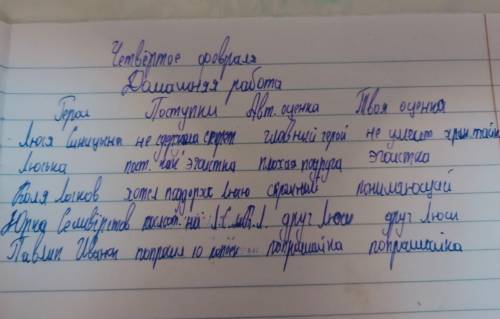 Четвёртое февраля
Домашняя работа
Герои Поступки Авт. оценка Твоя оценка
Люся Синицына не сдержала секрет главный герой не умеет хран. тайн
Люська пост. как эгоистка плохая подруга эгоистка
Коля Лыков хотел поддерж. Люсю странный понимающий
Юрка Селивёрстов на друг Люси друг Люси
Павлик Иванов попросил 10 копеек попрашайка попрашайка